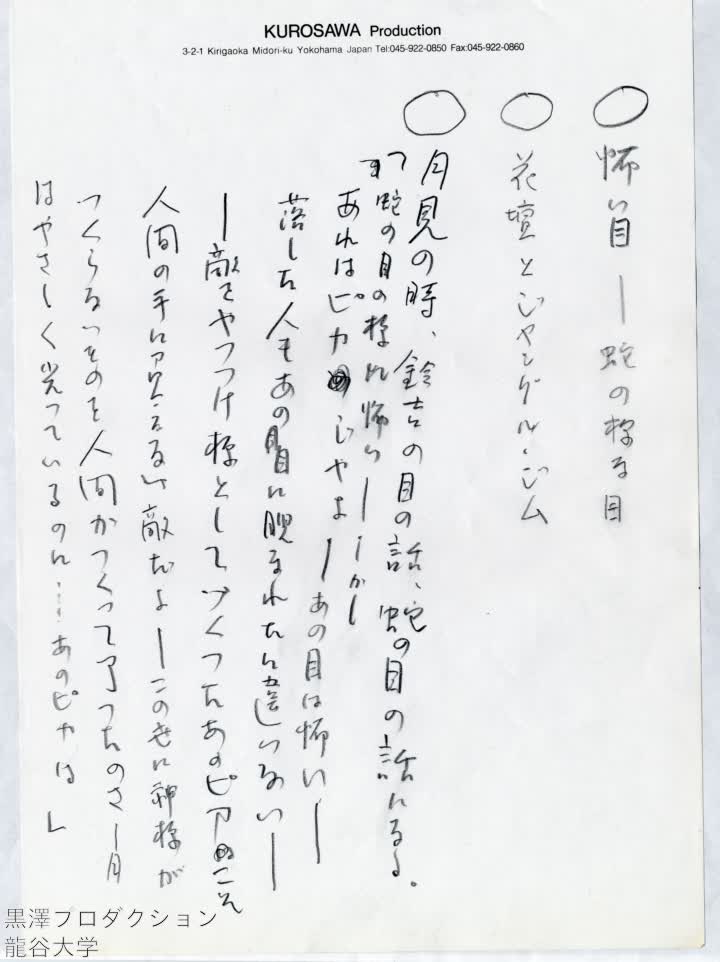 KUROSAWA Production
3-2-1 Kirigaoka Midori-ku Yokohama Japan Tel:045-922-0850 Fax:045-922-0860
○ 怖い目 ー 蛇の様な目
○ 花壇とジャングル・ジム
○ 月見の時、鈴吉の目の話、蛇の目の話になる。
「蛇の目の様に怖い ー しかし
あれはピカじゃよ ー あの目は怖い ー
落した人もあの目に睨まれたに違いない ー
ー 敵をやっつけ様としてつくったあのピカこそ
人間の手に負えない敵だよ ー この世に神様が
つくらないものを人間がつくって了ったのさ ー 月
はやさしく光っているのに…あのピカは」
黒澤プロダクション
龍谷大学